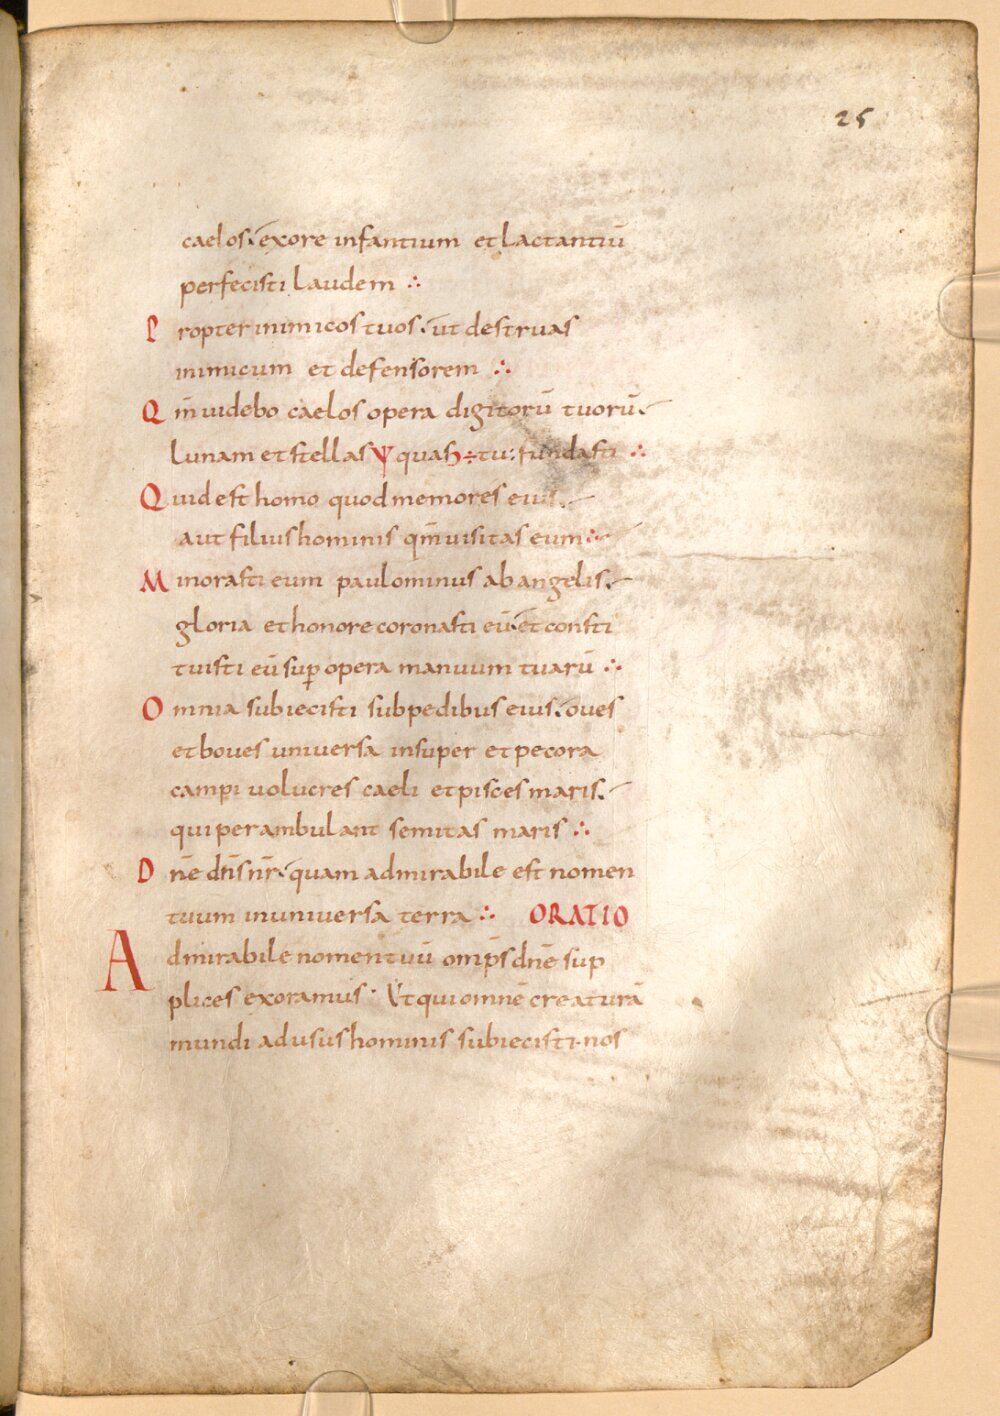 25
caelos. exore infantium et lactantiū
perfecisti laudem ∴
Propter inimicos tuos. ut destruas
inimicum et defensorem ∴
Qm̄ uidebo caelos opera digitorū tuorū.
lunam et stellas Ψ quas ÷ tu: fundasti ∴
Quid est homo quod memores eius.
aut filius hominis qm̄ uisitas eum ∴
Minorasti eum paulominus ab angelis.
gloria et honore coronasti eū. et consti
tuisti eū sup opera manuum tuarū ∴
Omnia subiecisti subpedibus eius. oues
et boues uniuersa insuper et pecora
campi uolucres caeli et pisces maris.
qui perambulant semitas maris ∴
Dnē dn̄s nr̄. quam admirabile est nomen
tuum inuniuersa terra ∴ ORATIO
Admirabile nomen tuū omp̄s dnē sup
plices exoramus · Ut qui omnē creaturā
mundi ad usus hominis subiecisti· nos